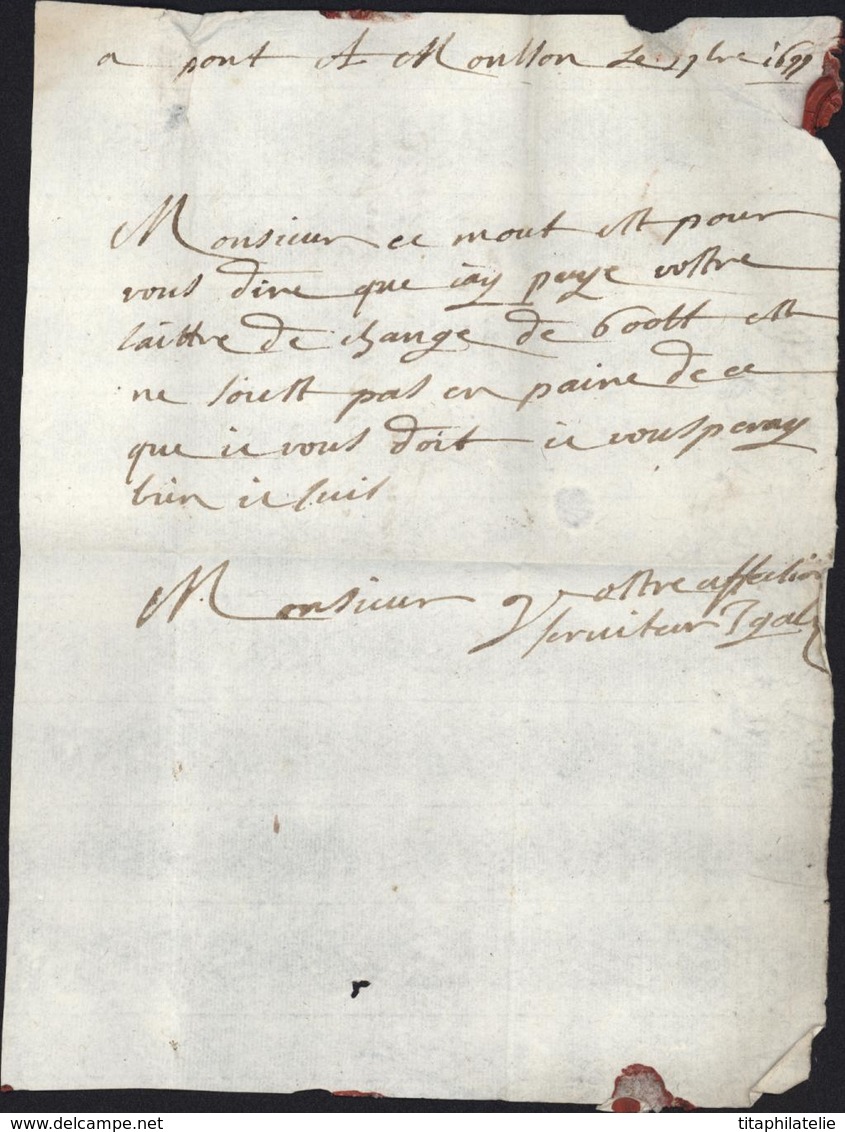 a pont A Mousson Le 17bre 1699
Monsieur ce mout est pour
vous dire que iay paye vostre
laittre de change de 600tt est
ne soiest pas en paine de ce
que ie vous doit ie vous peray
bien ie suis
Monsieur vostre affection
serviteur
titaphilatelie
www.delcampe.net